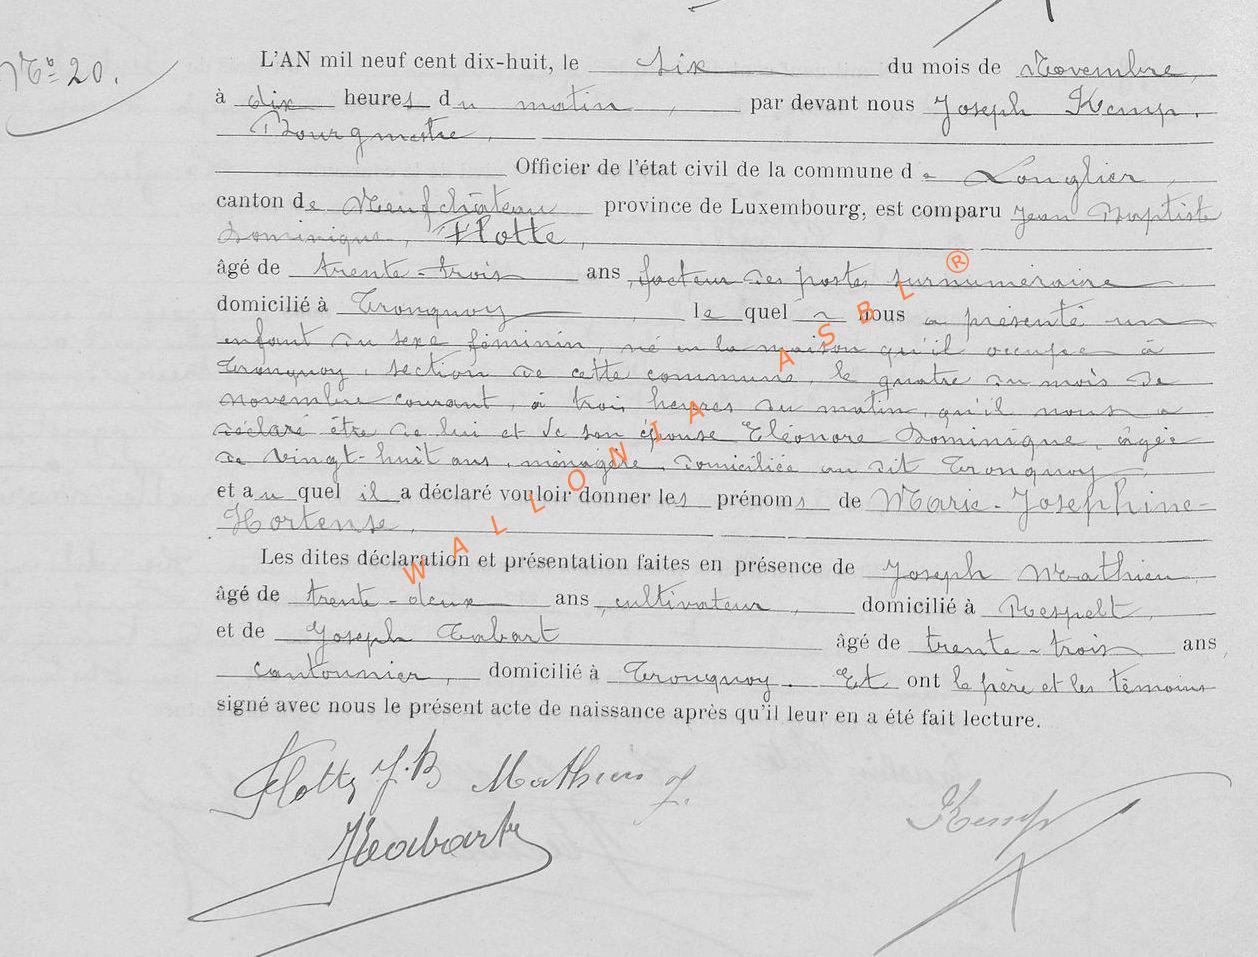 Nº 20.
L'AN mil neuf cent dix-huit, le six du mois de Novembre,
à dix heures du matin, par devant nous Joseph Kemp,
Bourgmestre,
Officier de l'état civil de la commune de Longlier,
canton de Neufchâteau province de Luxembourg, est comparu Jean Baptiste
Dominique, Flotte,
âgé de trente-trois ans, facteur des postes surnuméraire
domicilié à Tronquoy, le quel nous a présenté un
enfant du sexe féminin, né en la maison qu'il occupe à
Tronquoy, section de cette commune, le quatre du mois de
novembre courant, à trois heures du matin, qu'il nous a
déclaré être de lui et de son épouse Eléonore Dominique, âgée
de vingt-huit ans, ménagère, domiciliée au dit Tronquoy,
et au quel il a déclaré vouloir donner les prénoms de Marie-Joséphine-
Hortense.
Les dites déclaration et présentation faites en présence de Joseph Mathieu
âgé de trente-deux ans, cultivateur, domicilié à Respelt,
et de Joseph Tabart âgé de trente-trois ans,
cantonnier, domicilié à Tronquoy. Et ont le père et les témoins
signé avec nous le présent acte de naissance après qu'il leur en a été fait lecture.
Flotte J.B Mathieu J.
Kemp
Tabart
WALLONIA ASBL ®